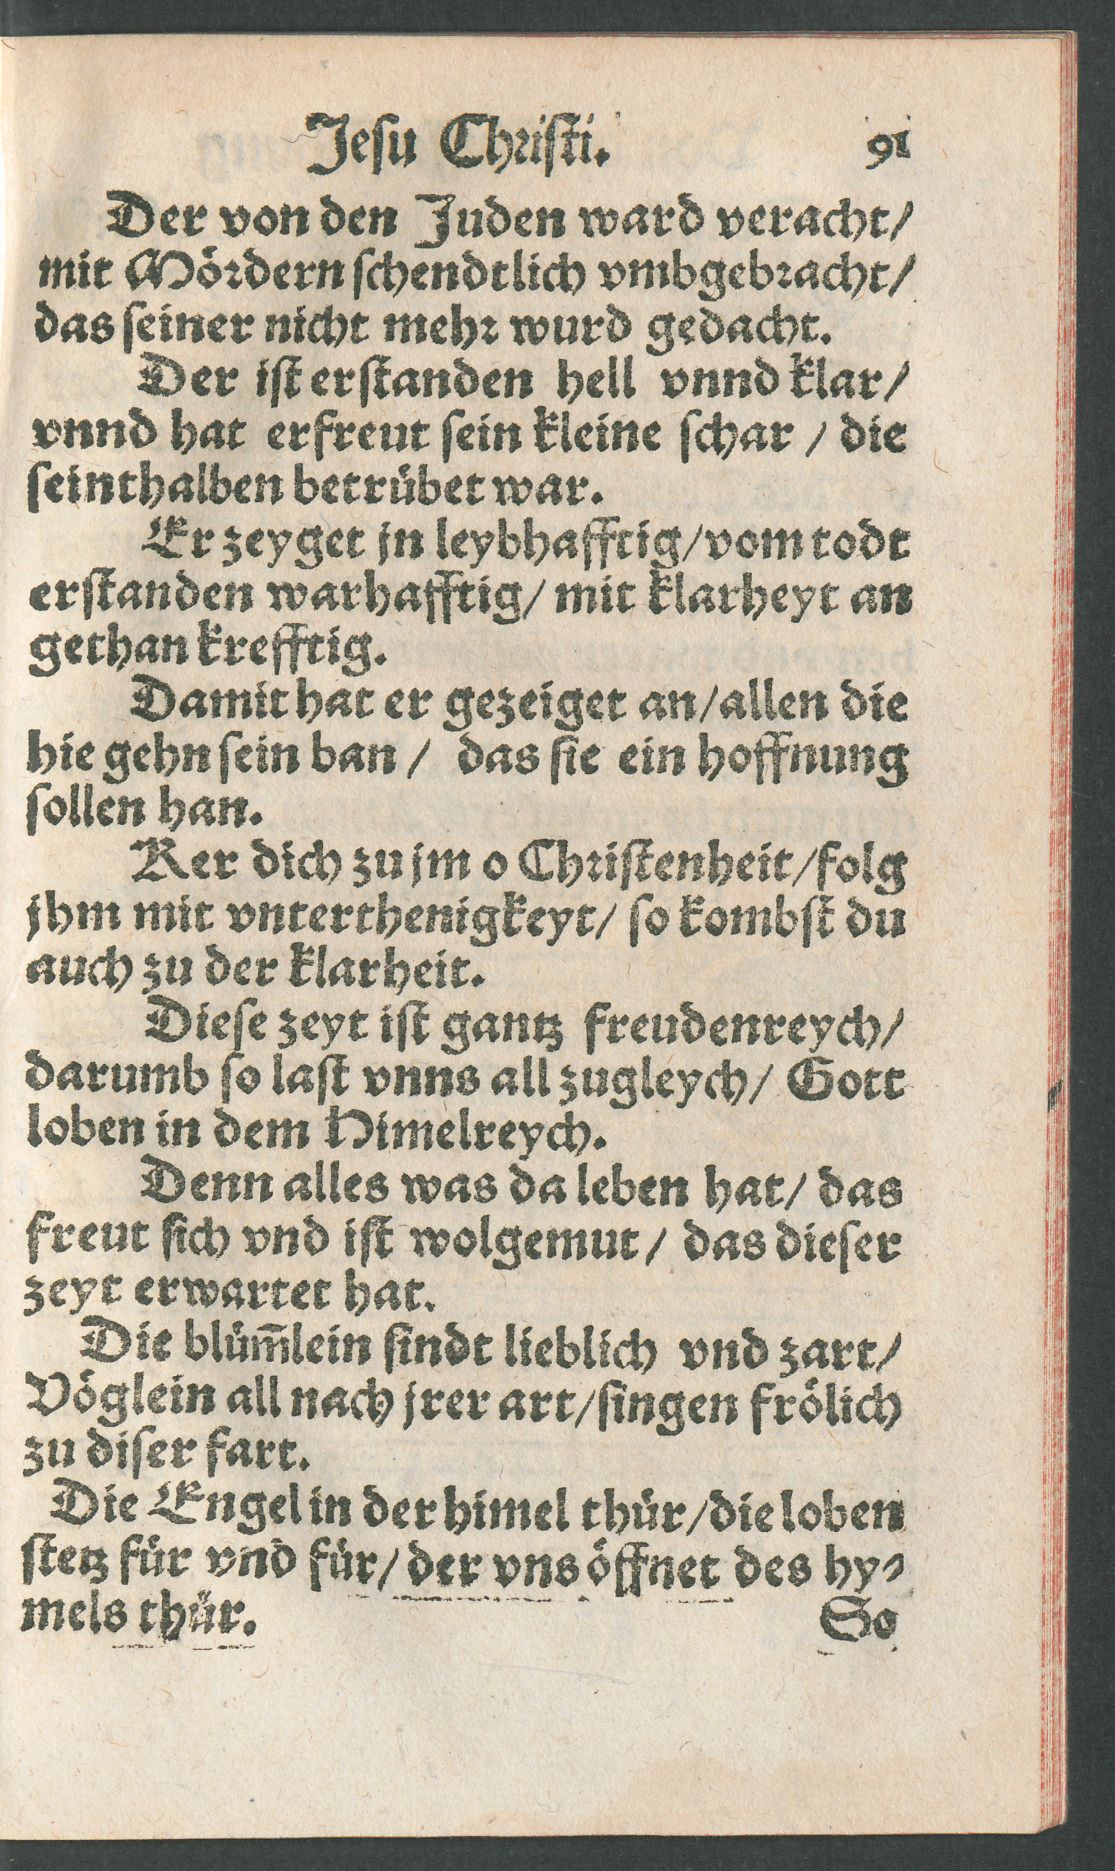 Jesu Christi. 91
Der von den Juden ward veracht/
mit Mördern schendtlich vmbgebracht/
das seiner nicht mehr wurd gedacht.
Der ist erstanden hell vnnd klar/
vnnd hat erfreut sein kleine schar / die
seinthalben betrübet war.
Er zeyget jn leybhafftig/vom todt
erstanden warhafftig/ mit klarheyt an
gethan krefftig.
Damit hat er gezeiget an/allen die
hie gehn sein ban / das sie ein hoffnung
sollen han.
Ker dich zu jm o Christenheit/folg
jhm mit vnterthenigkeyt/ so kombst du
auch zu der klarheit.
Diese zeyt ist gantz freudenreych/
darumb so last vnns all zugleych/ Gott
loben in dem Himelreych.
Denn alles was da leben hat/ das
freut sich vnd ist wolgemut/ das dieser
zeyt erwartet hat.
Die blüm̄lein sindt lieblich vnd zart/
Vöglein all nach jrer art/singen frölich
zu diser fart.
Die Engel in der himel thür/die loben
stetz für vnd für/ der vns öffnet des hy-
mels thür. So